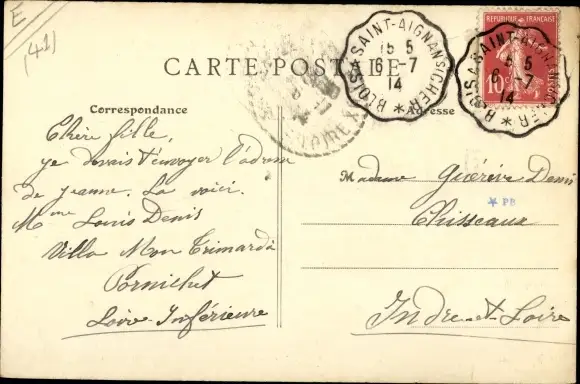 E
(41)
CARTE POSTALE
BLOIS A SAINT-AIGNAN S/CHER *
15 5
6 -7
14
RÉPUBLIQUE FRANÇAISE
10
BLOIS A SAINT-AIGNAN S/CHER *
5
6 -7
14
Correspondance
Adresse
Chère fille,
je devais t'envoyer l'adresse
de Jeanne. La voici.
Mme Louis Denis
Villa Mon Trimardi
Pornichet
Loire-Inférieure
Madame Guérive Denis
* PB
Chisseaux
Indre-et-Loire